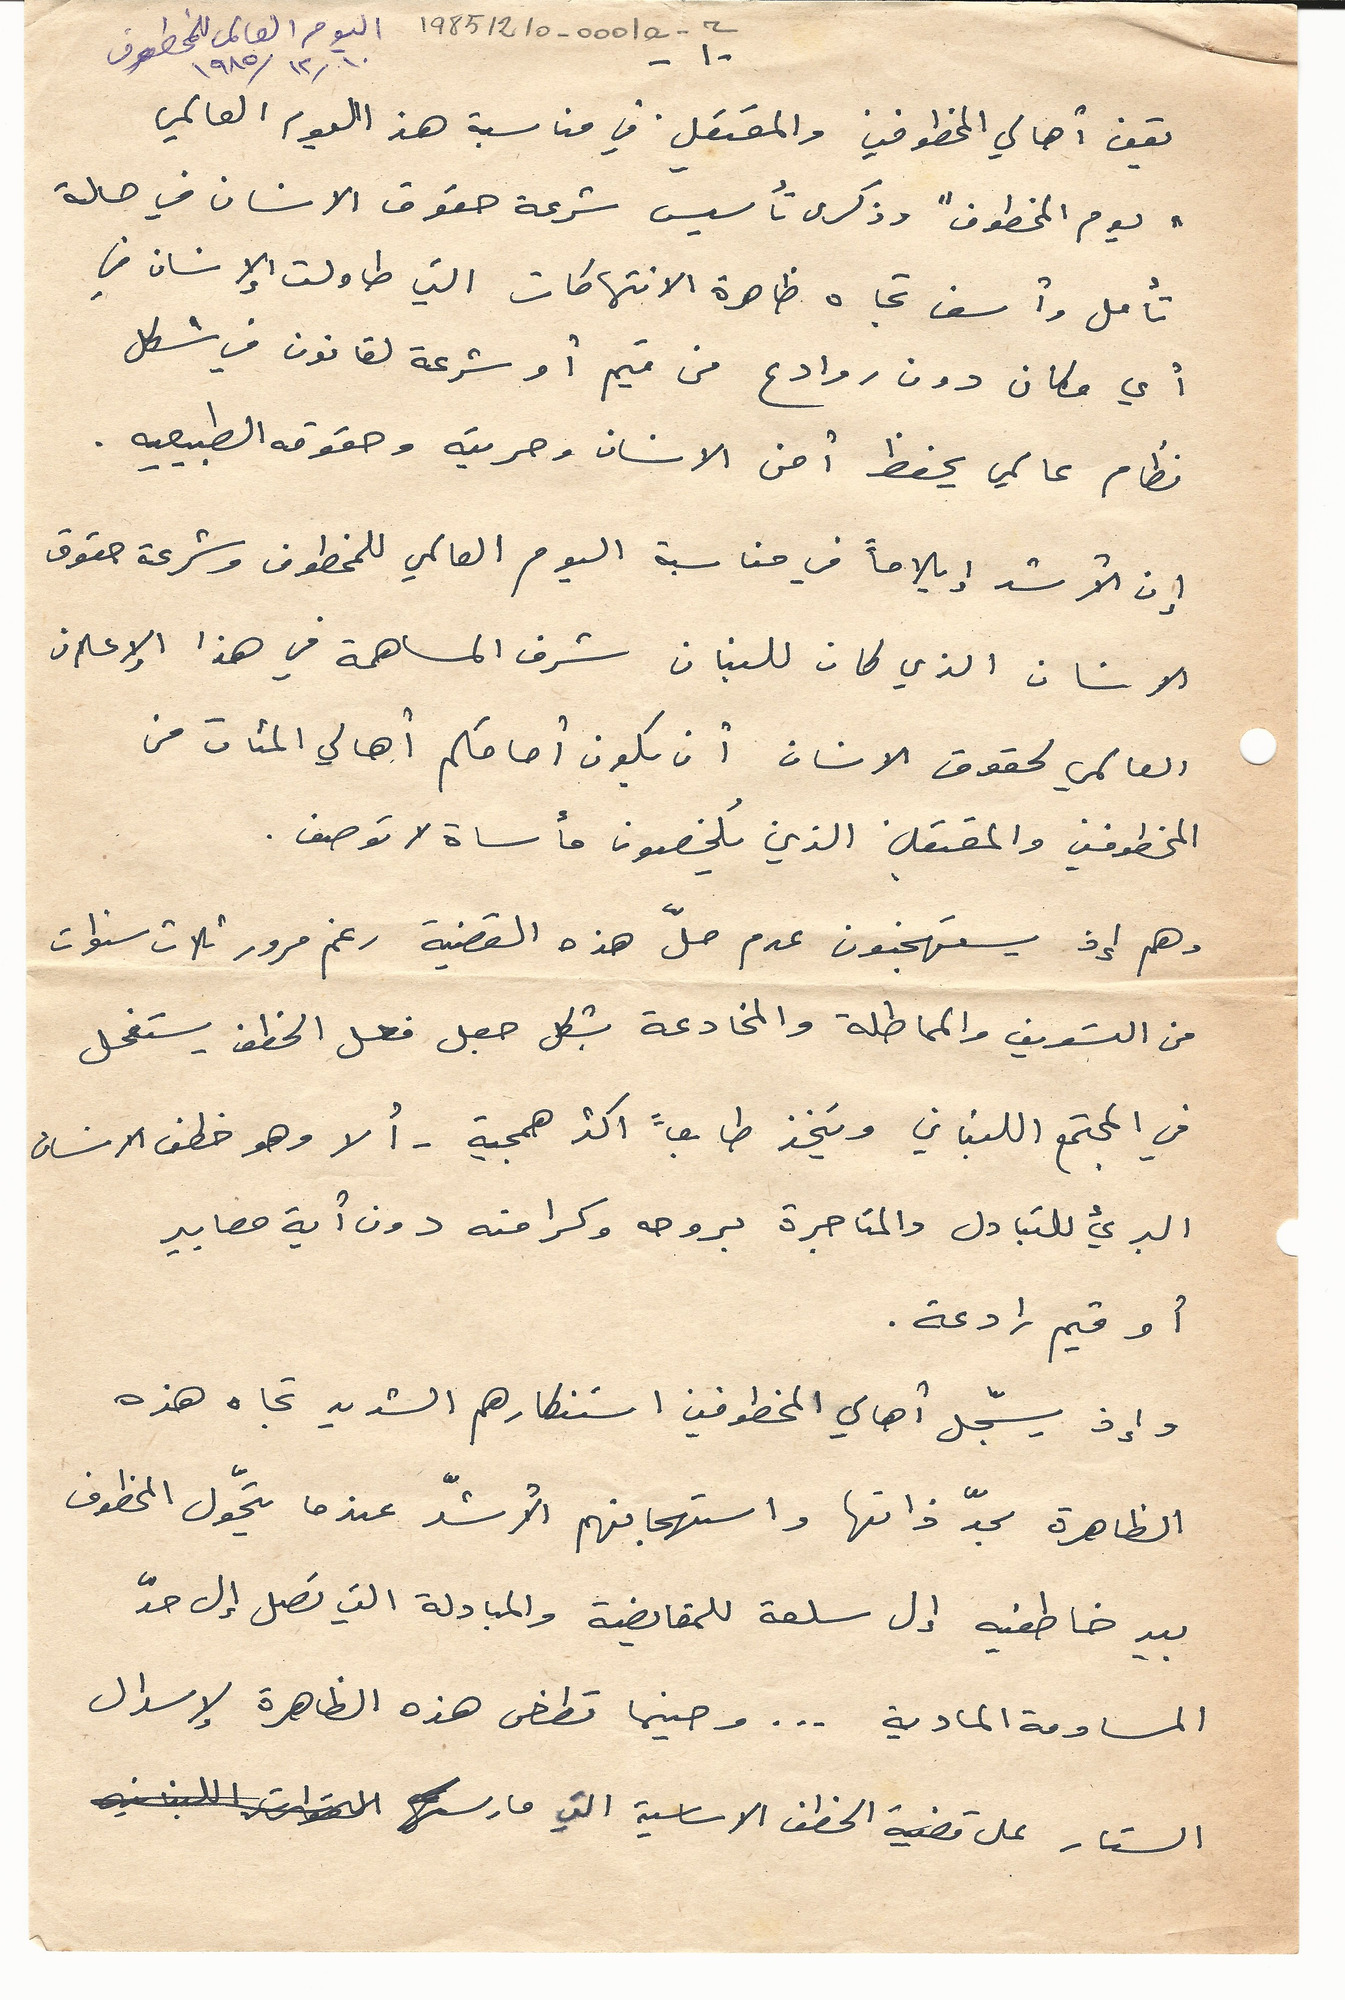 اليوم العالمي للمخطوف
١٠/١٢/١٩٨٥
19851210-0001a-ج
-١-
يقف أهالي المخطوفين والمعتقلين في مناسبة هذا اليوم العالمي
"يوم المخطوف" وذكرى تأسيس شرعة حقوق الانسان في حالة
تأمل وأسف تجاه ظاهرة الانتهاكات التي طاولت الإنسان في
أي مكان دون روادع من قيم أو شرعة لقانون في شكل
نظام عالمي يحفظ أمن الانسان وحريته وحقوقه الطبيعيه .
إن الأشد إيلاماً في مناسبة اليوم العالمي للمخطوف وشرعة حقوق
الانسان الذي كان للبنان شرف المساهمة في هذا الإعلان
العالمي لحقوق الانسان أن يكون أمامكم أهالي المئات من
المخطوفين والمعتقلين الذين يُلخصون مأساة لا توصف .
وهم إذ يستهجنون عدم حلّ هذه القضية رغم مرور ثلاث سنوات
من التسويف والمماطلة والمخادعة بشكل جعل فعل الخطف يستفحل
في المجتمع اللبناني ويتخذ طابعاً اكثر همجية - ألا وهو خطف الانسان
البريء للتبادل والمتاجرة بروحه وكرامته دون أية معايير
أو قيم رادعة .
وإذ يسجّل أهالي المخطوفين استنكارهم الشديد تجاه هذه
الظاهرة بحدّ ذاتها واستهجانهم الأشدّ عندما يتحّول المخطوف
بيد خاطفيه إلى سلعة للمقايضة والمبادلة التي تصل إلى حدّ
المساومة المادية ... وحينما تطغى هذه الظاهرة لإسدال
الستار على قضية الخطف الاساسية التي مارستها القوات اللبنانيه